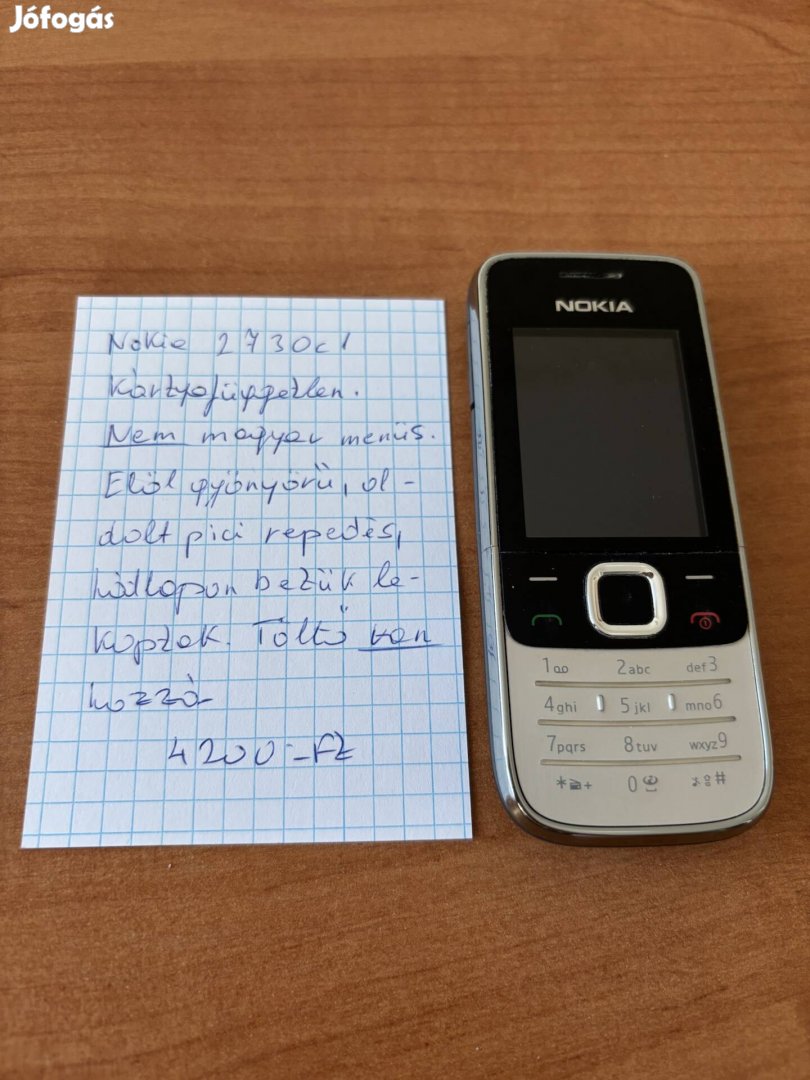 Jófogás
Nokia 2730c1
Kártyafüggetlen.
Nem magyar menüs.
Elöl gyönyörű, ol-
dalt pici repedés,
hádlapon betűk le-
koptak. Töltő van
hozzá
4200-Ft
NOKIA
1 2abc def3
4ghi 5jkl mno6
7pqrs 8tuv wxyz9
*+ 0 #